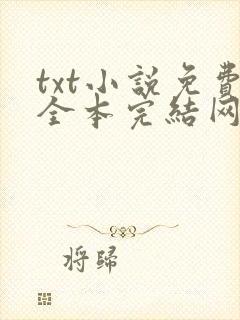 txt小説免費
全本完結网
将歸